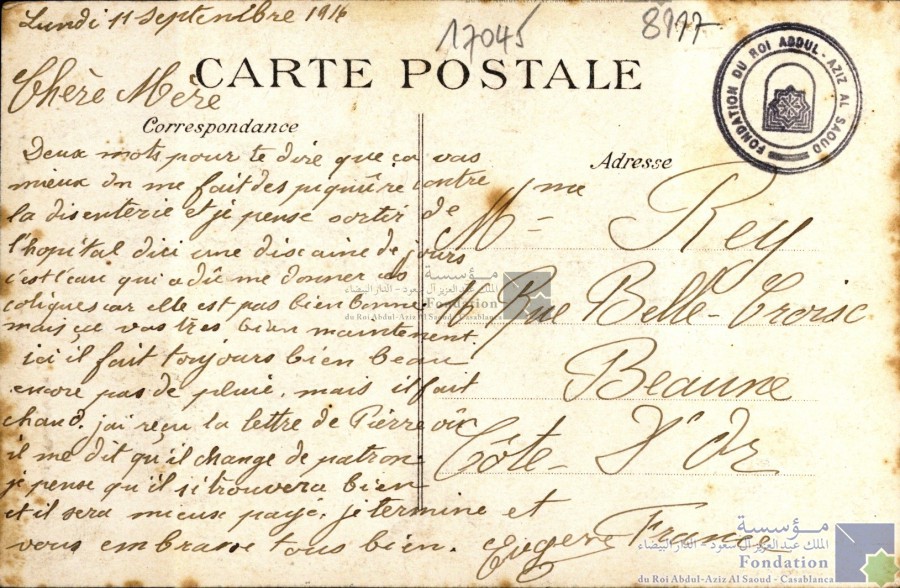 Lundi 11 septembre 1916
17045
8117
CARTE POSTALE
FONDATION DU ROI ABDUL-AZIZ AL SAOUD
Chère Mère
Correspondance
Deux mots pour te dire que ça vas
mieux on me fait des piquûre contre
la disenterie et je pense sortir de
l'hopital dici une discaine de jours
c'est l'eau qui a dû me donner ces
coliques car elle est pas bien bonne
mais ça vas très bien maintenent.
ici il fait toujours bien beau
encore pas de pluie, mais il fait
chaud. jai reçu la lettre de Pierre où
il me dit qu'il change de patron
je pense qu'il si trouvera bien
et il sera mieux payé. je termine et
vous embrasse tous bien. Eugène
Adresse
Mme Rey
Rue Belle-Croise
Beaune
Côte D'Or
France
مؤسسة
الملك عبد العزيز آل سعود - الدار البيضاء
Fondation
du Roi Abdul-Aziz Al Saoud - Casablanca
مؤسسة
الملك عبد العزيز آل سعود - الدار البيضاء
Fondation
du Roi Abdul-Aziz Al Saoud - Casablanca